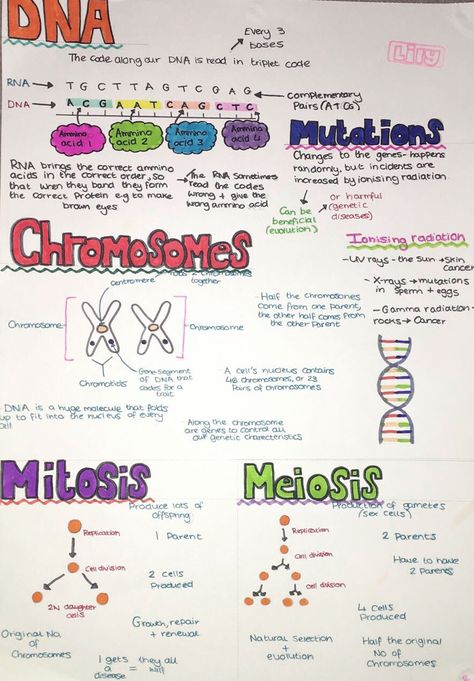 DNA
Every 3
bases
The code along our DNA is read in triplet code
Lily
RNA → T G C T T A G T C G A G ← complementary
Pairs (A T C G)
DNA → A C G A A T C A G C T C
Ammino acid 1
Ammino acid 2
Ammino acid 3
Ammino acid 4
RNA brings the correct ammino
acids in the correct order, so
that when they band they form
the correct Protein e.g to make
brown eyes
The RNA sometimes
read the codes
wrong + give the
wrong amino acid
Mutations
Changes to the genes - happens
randomly, but incidents are
increased by ionising radiation
Can be
beneficial
(evolution)
or harmful
(genetic
diseases)
Ionising radiation
- UV rays - the Sun → Skin
cancer
- X-rays → mutations
in sperm + eggs
- Gamma radiation -
rocks → Cancer
Chromosomes
centromere
2 chromosomes
together
Chromosome
Chromosome
Chromotids
Gene - Segment
of DNA that
codes for a
trait
- Half the chromosomes
come from one parent,
the other half comes from
the other Parent
- A cell's nucleus contains
46 chromosomes, or 23
Pairs of chromosomes
- DNA is a huge molecule that folds
up to fit into the nucleus of every
cell
Along the chromosome
are genes to control all
our genetic characteristics
Mitosis
Produce lots of
offspring
Replication
1 Parent
Cell division
2 cells
Produced
2N daughter
cells
Growth, repair
+ renewal
Original No.
of
Chromosomes
1 gets a disease = they all will
Meiosis
Production of gametes
(sex cells)
Replication
2 Parents
Cell division
Have to have
2 Parents
Cell division
4 cells
Produced
Natural Selection
+
evolution
Half the original
No of
Chromosomes